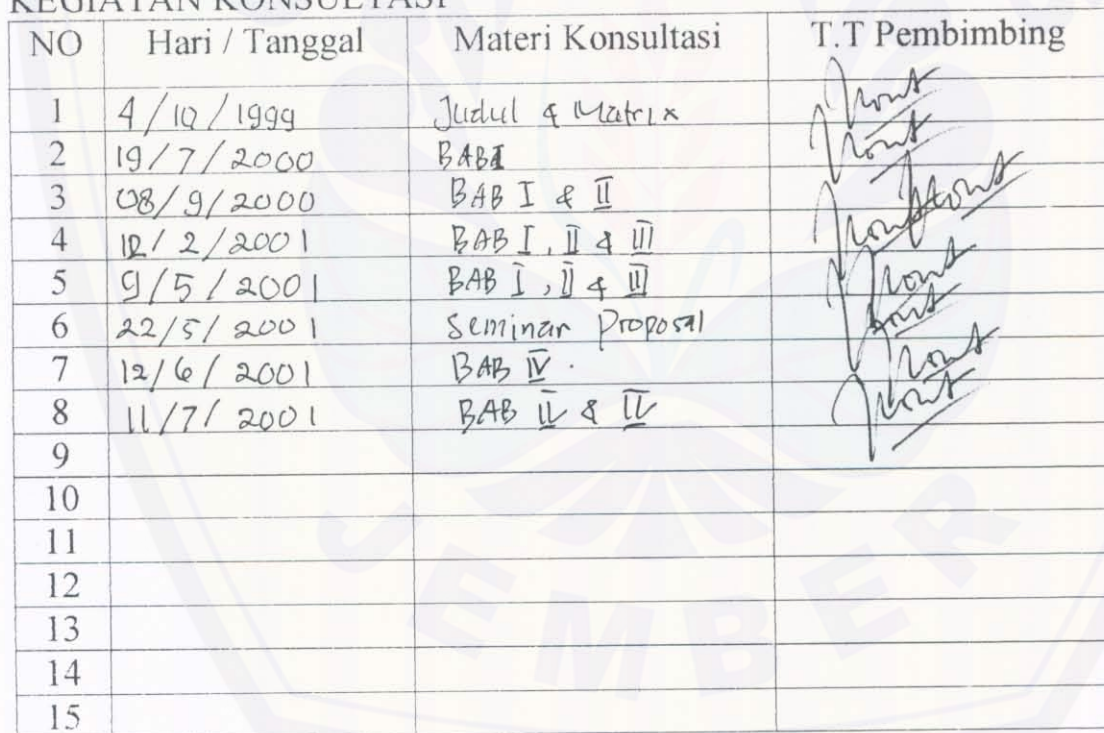 KEGIATAN KONSULTASI
NO Hari / Tanggal Materi Konsultasi T.T Pembimbing
1 4/10/1999 Judul & Matrix
2 19/7/2000 BAB I
3 08/9/2000 BAB I & II
4 12/2/2001 BAB I, II & III
5 9/5/2001 BAB I, II & III
6 22/5/2001 Seminar Proposal
7 12/6/2001 BAB IV.
8 11/7/2001 BAB &
9
10
11
12
13
14
15
JEMBER